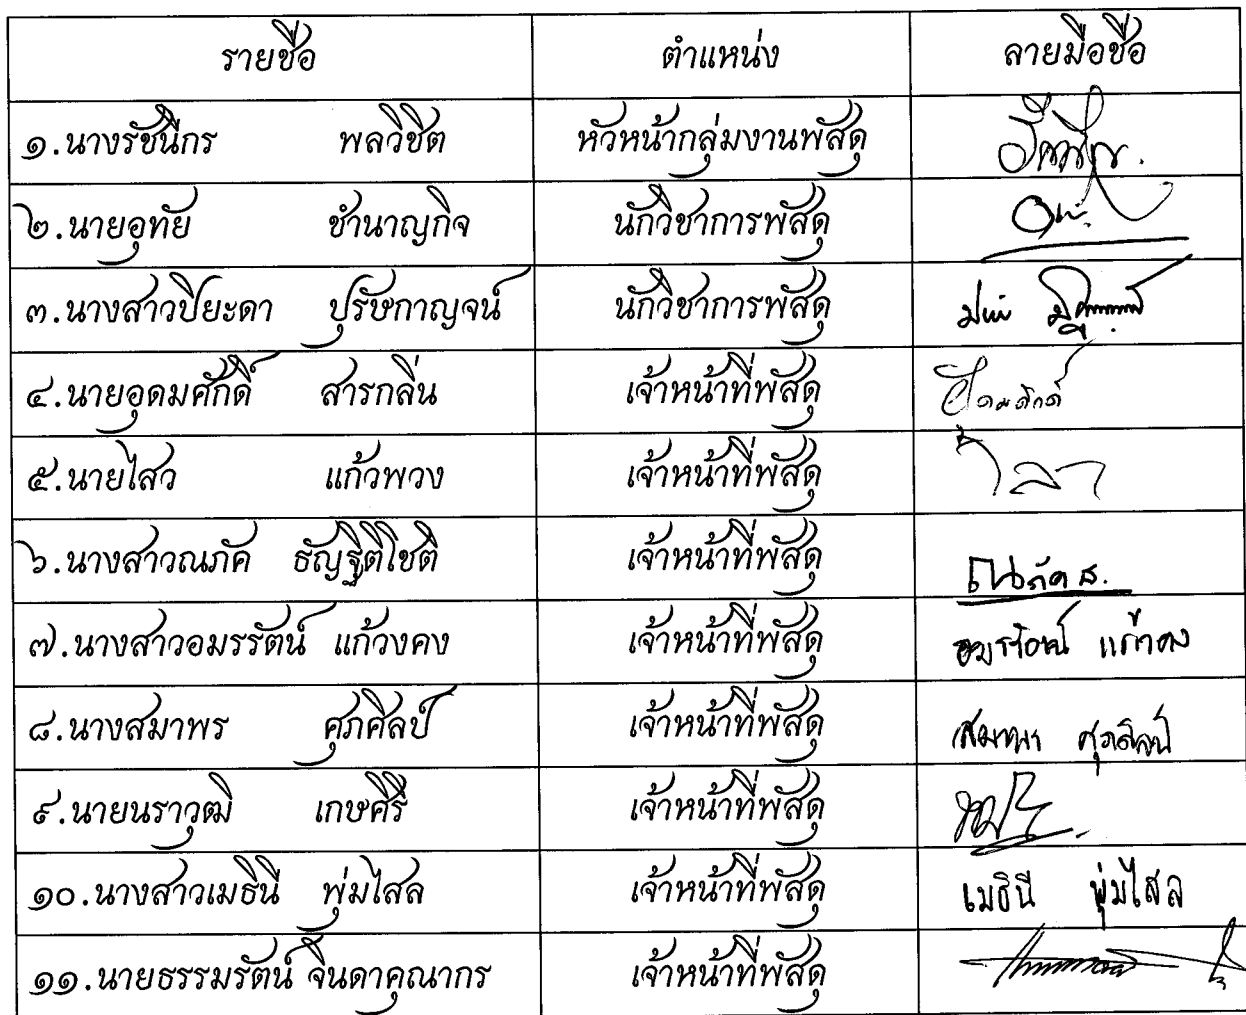 รายชื่อ ตำแหน่ง ลายมือชื่อ
๑.นางรัชนีกร พลวิชิต หัวหน้ากลุ่มงานพัสดุ
๒.นายอุทัย ชำนาญกิจ นักวิชาการพัสดุ
๓.นางสาวปิยะดา ปุรัษกาญจน์ นักวิชาการพัสดุ
๔.นายอุดมศักดิ์ สารกลิ่น เจ้าหน้าที่พัสดุ อุดมศักดิ์
๕.นายไสว แก้วพวง เจ้าหน้าที่พัสดุ
๖.นางสาวณภัค ธัญฐิติโชติ เจ้าหน้าที่พัสดุ ณภัค ธ.
๗.นางสาวอมรรัตน์ แก้วงคง เจ้าหน้าที่พัสดุ อมรรัตน์
๘.นางสมาพร ศุภศิลป์ เจ้าหน้าที่พัสดุ สมาพร ศุภศิลป์
๙.นายนราวุฒิ เกษศิริ เจ้าหน้าที่พัสดุ
๑๐.นางสาวเมธินี พุ่มไสล เจ้าหน้าที่พัสดุ เมธินี พุ่มไสล
๑๑.นายธรรมรัตน์ จินดาคุณากร เจ้าหน้าที่พัสดุ